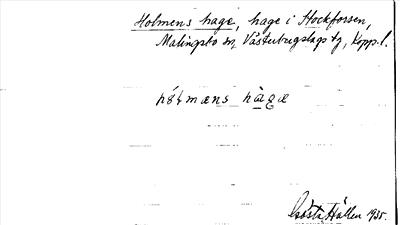 Holmens hage, hage i Stockforsen,
Malingsbo sn, Västerbergslags tg, Kopp. l.
hólmæns hàgæ
Gösta Hallen 1935.